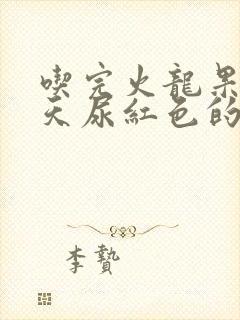 喫完火龍果
天尿紅色的
李贄